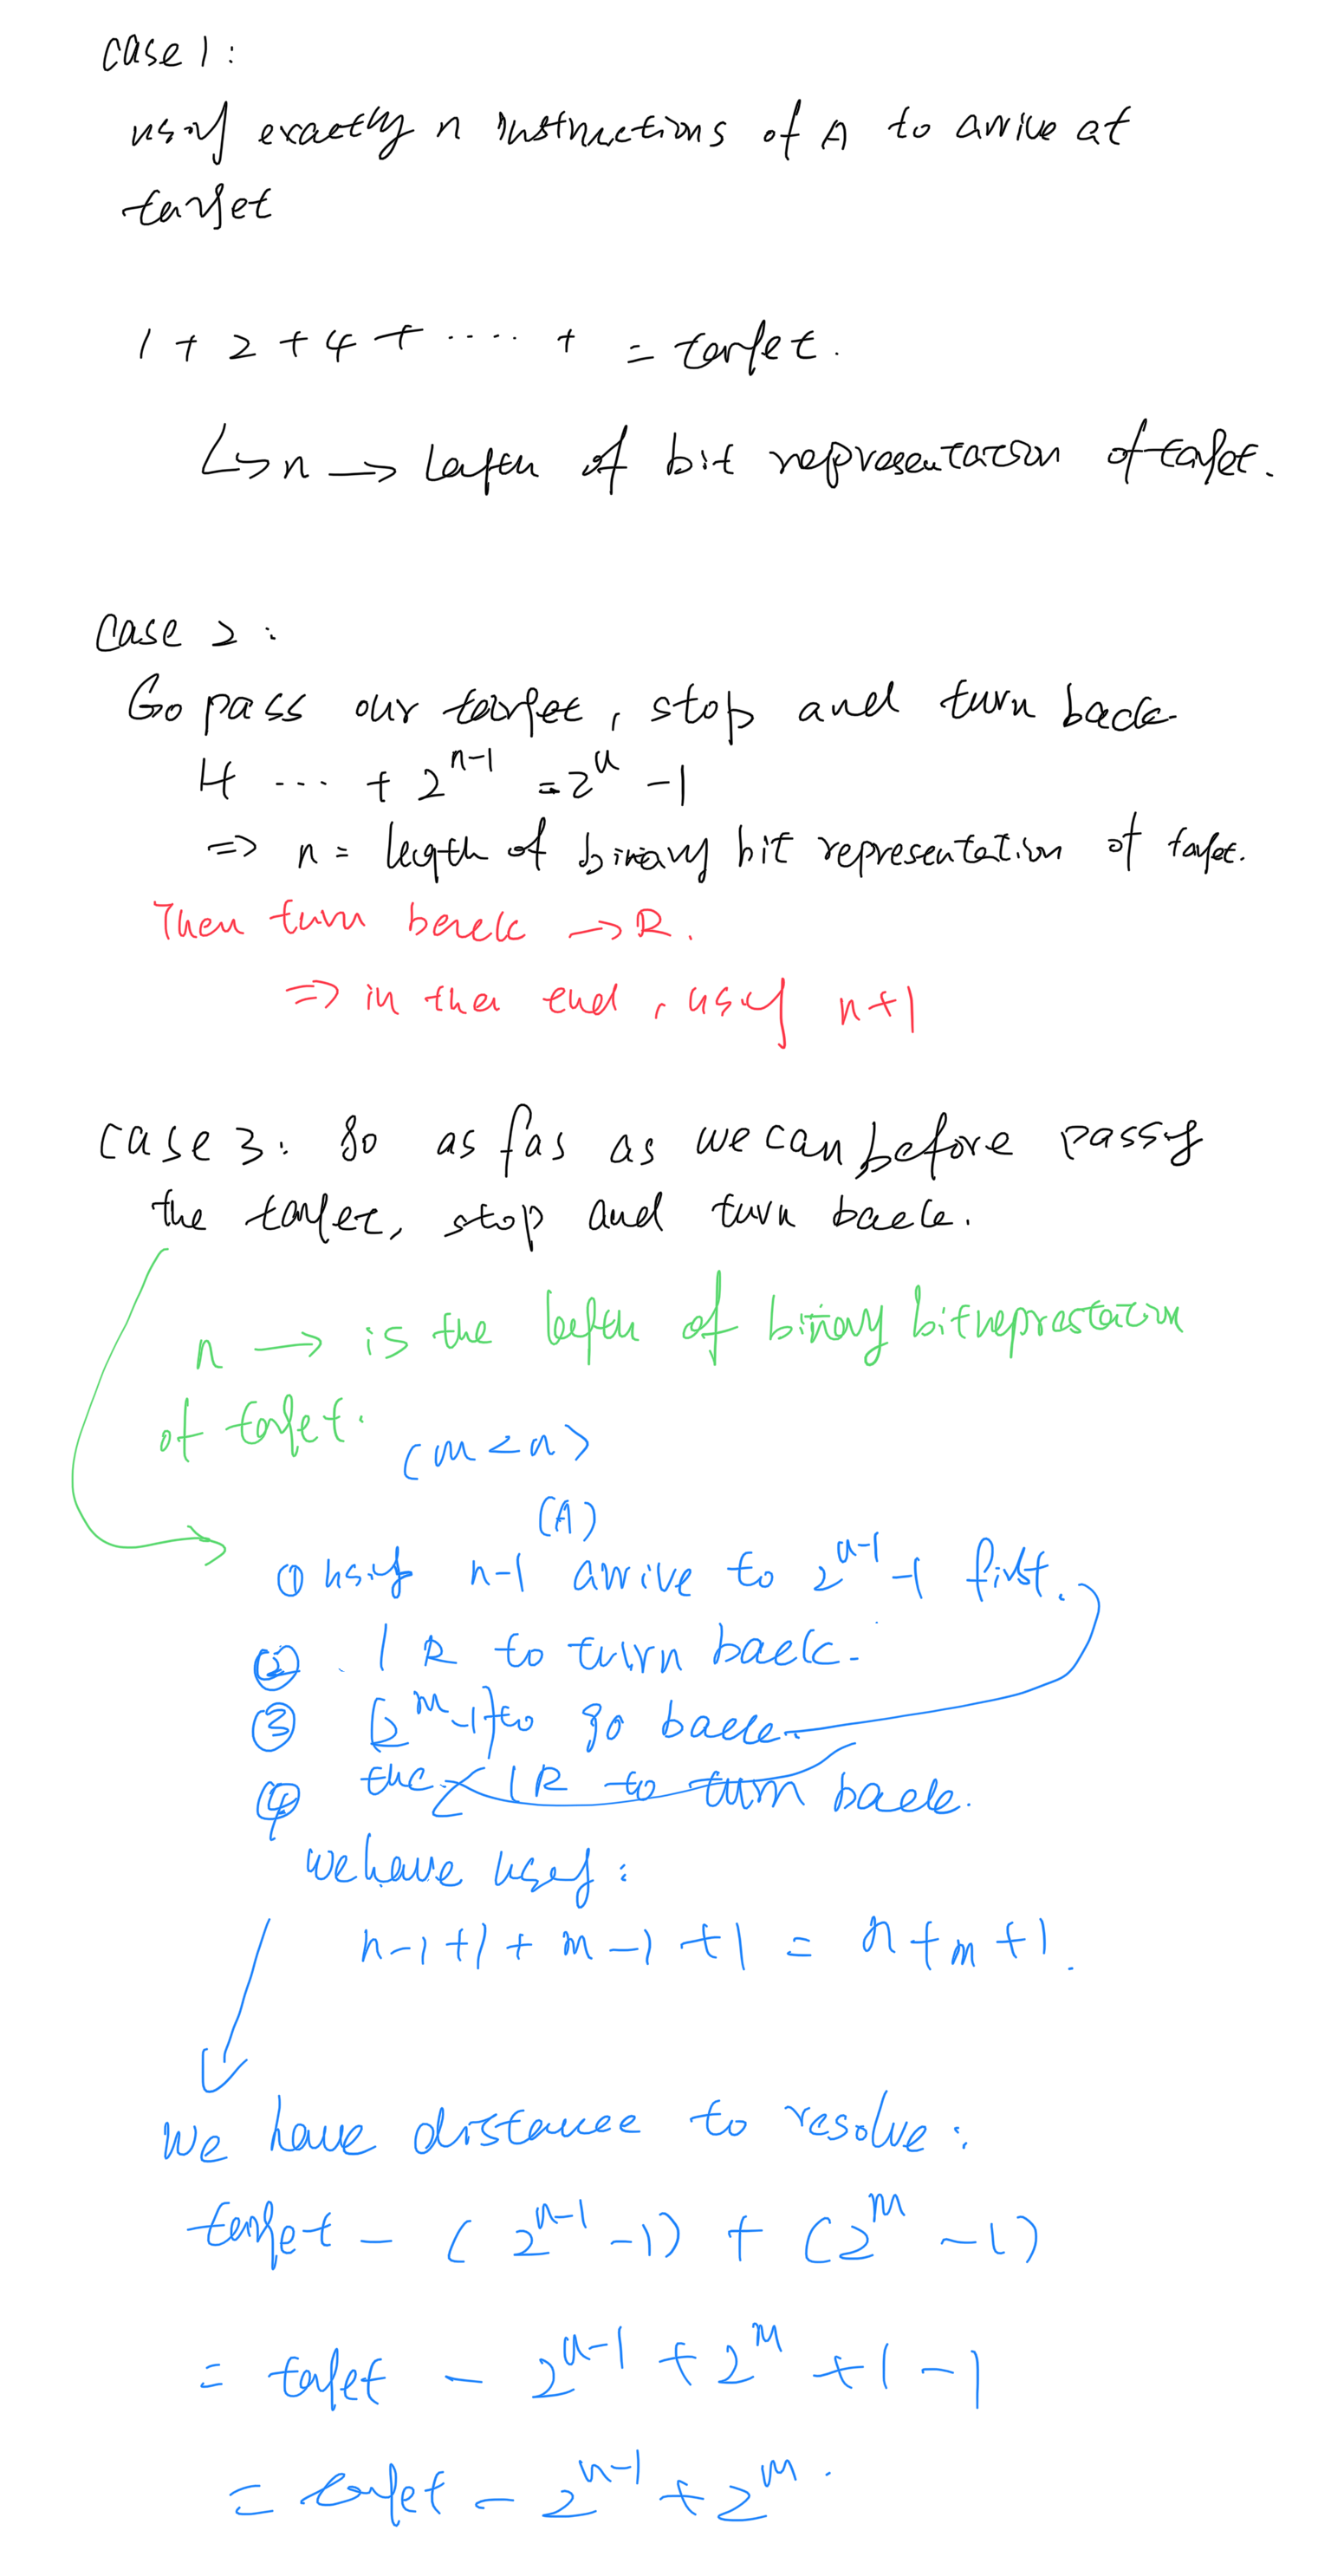 case 1:
using exactly n instructions of A to arrive at
target
1 + 2 + 4 + ..... + = target.
↳ n → length of bit representation of target.
case 2:
Go pass our target, stop and turn back
1+ ... + 2^{n-1} = 2^n - 1
=> n = length of binary bit representation of target.
Then turn back → R.
=> in the end, using n+1
case 3: go as fas as we can before passing
the target, stop and turn back.
n → is the length of binary bit
of target.
(m < n)
(A)
① using n-1 arrive to 2^{n-1} -1 first.
② . 1 R to turn back.
③ [2^m -1] to go back
④ the 1R to turn back.
we have using:
n-1+1+m-1+1 = n+m+1.
We have distance to resolve:
target - (2^{n-1} -1) + (2^m -1)
= target - 2^{n-1} + 2^m +1 -1
= target - 2^{n-1} + 2^m.